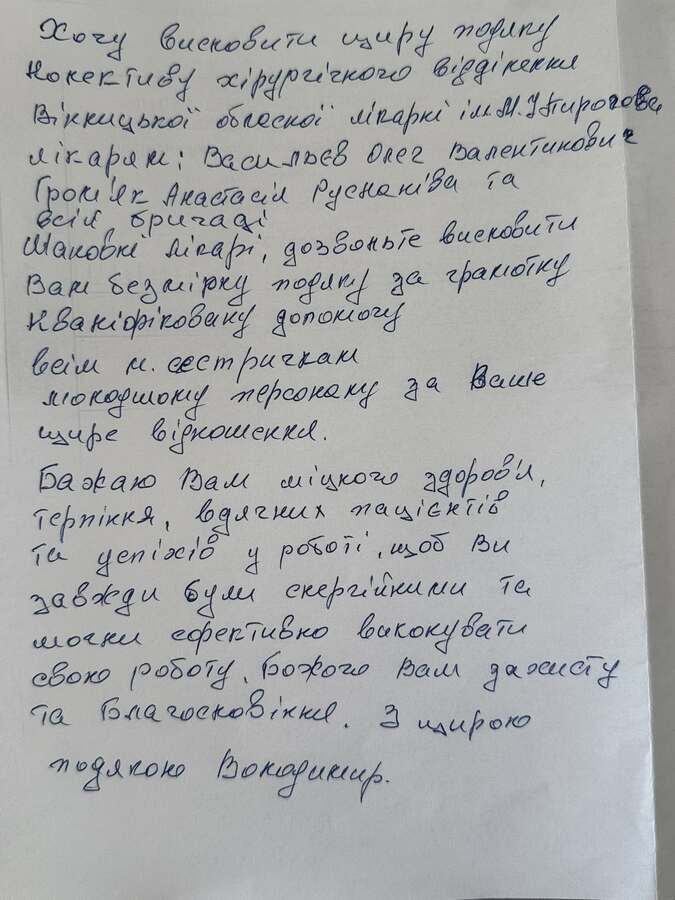 Хочу висловити щиру подяку
колективу хірургічного відділення
Вінницької обласної лікарні ім. М.І Пирогова
лікарям: Васильєв Олег Валентинович
Гром'як Анастасія Русланівна та
всій бригаді
Шановні лікарі, дозвольте висловити
Вам безмірну подяку за грамотну
кваліфіковану допомогу
всім м. сестричкам
молодшому персоналу за Ваше
щире відношення.
Бажаю Вам міцного здоров'я,
терпіння, вдячних пацієнтів
та успіхів у роботі, щоб Ви
завжди були енергійними та
могли ефективно виконувати
свою роботу. Божого Вам захисту
та Благословіння. З щирою
подякою Володимир.